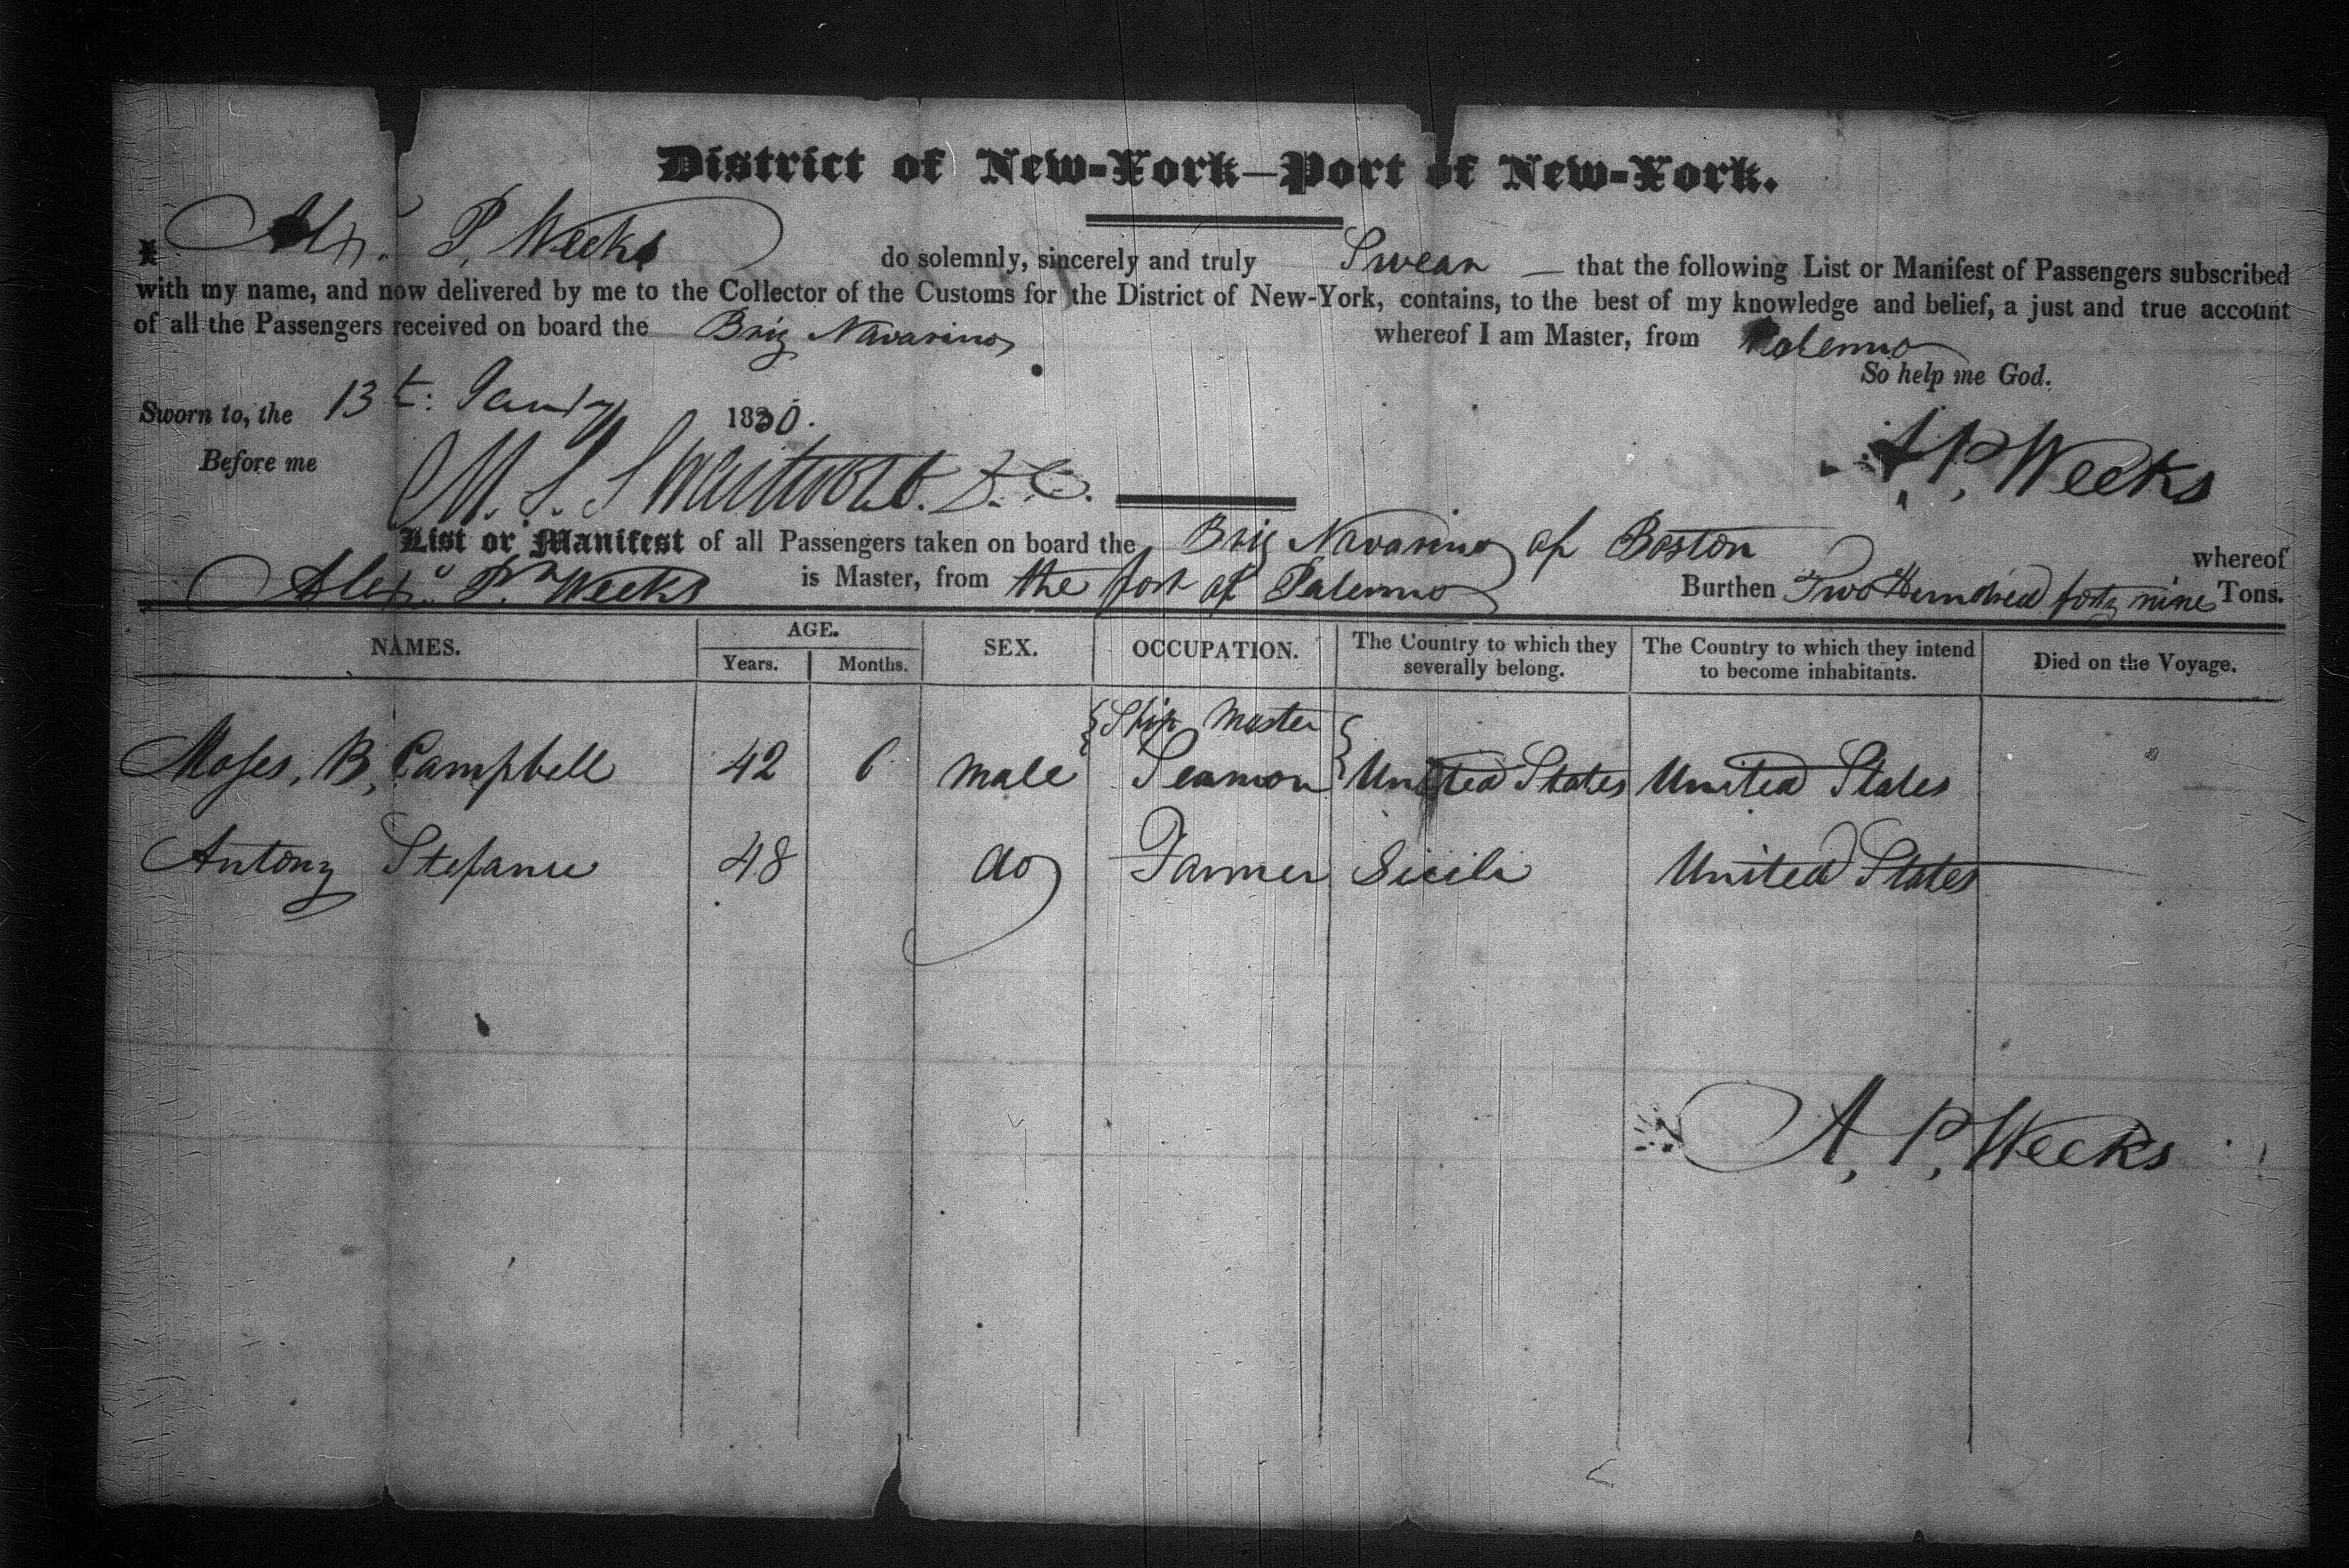 District of New-York—Port of New-York.
I Alx. P. Weeks do solemnly, sincerely and truly Swear — that the following List or Manifest of Passengers subscribed
with my name, and now delivered by me to the Collector of the Customs for the District of New-York, contains, to the best of my knowledge and belief, a just and true account
of all the Passengers received on board the Brig Navarino whereof I am Master, from Palermo
So help me God.
Sworn to, the 13t: Jany 1830.
Before me
A. P. Weeks
List or Manifest of all Passengers taken on board the Brig Navarino of Boston whereof
Alexr. P. Weeks is Master, from the port of Palermo Burthen Two Hundred forty nine Tons.
NAMES. AGE. SEX. OCCUPATION. The Country to which they severally belong. The Country to which they intend to become inhabitants. Died on the Voyage.
Years. Months.
Ship Master
Moses, B, Campbell 42 6 male Seamon United States United States
Antony Stefanu 48 do Farmer Sicili United States
A, P, Weeks